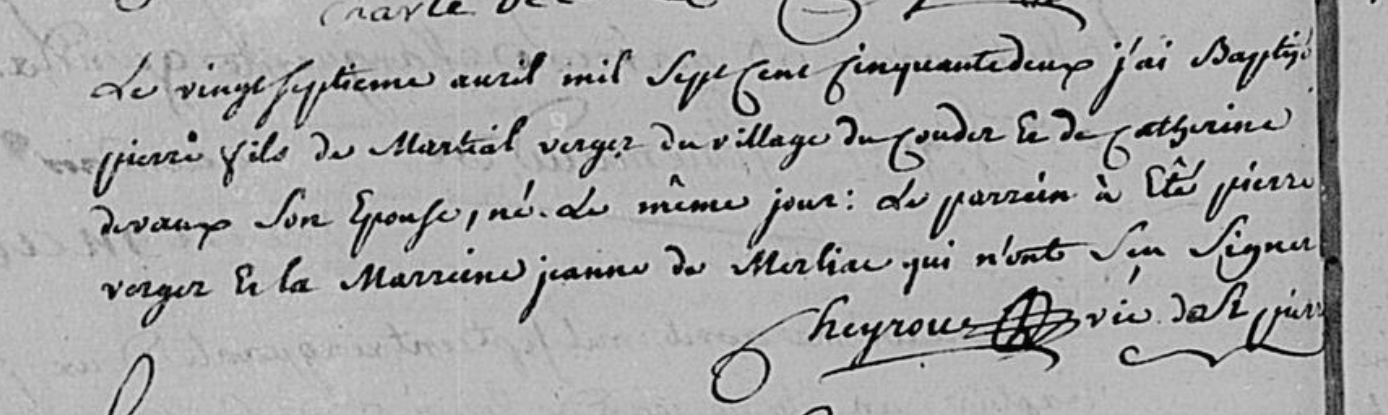 Le vingt septieme avril mil Sept Cent Cinquante deux j'ai Baptisé
pierre fils de Martial verger du village du Couder Et de Catherine
devaux Son Epouse, né Le même jour: Le parrein à Eté pierre
verger Et la Marreine jeanne de Merliac qui n'ont Seu Signer
Cheyroux vic. de St pierre